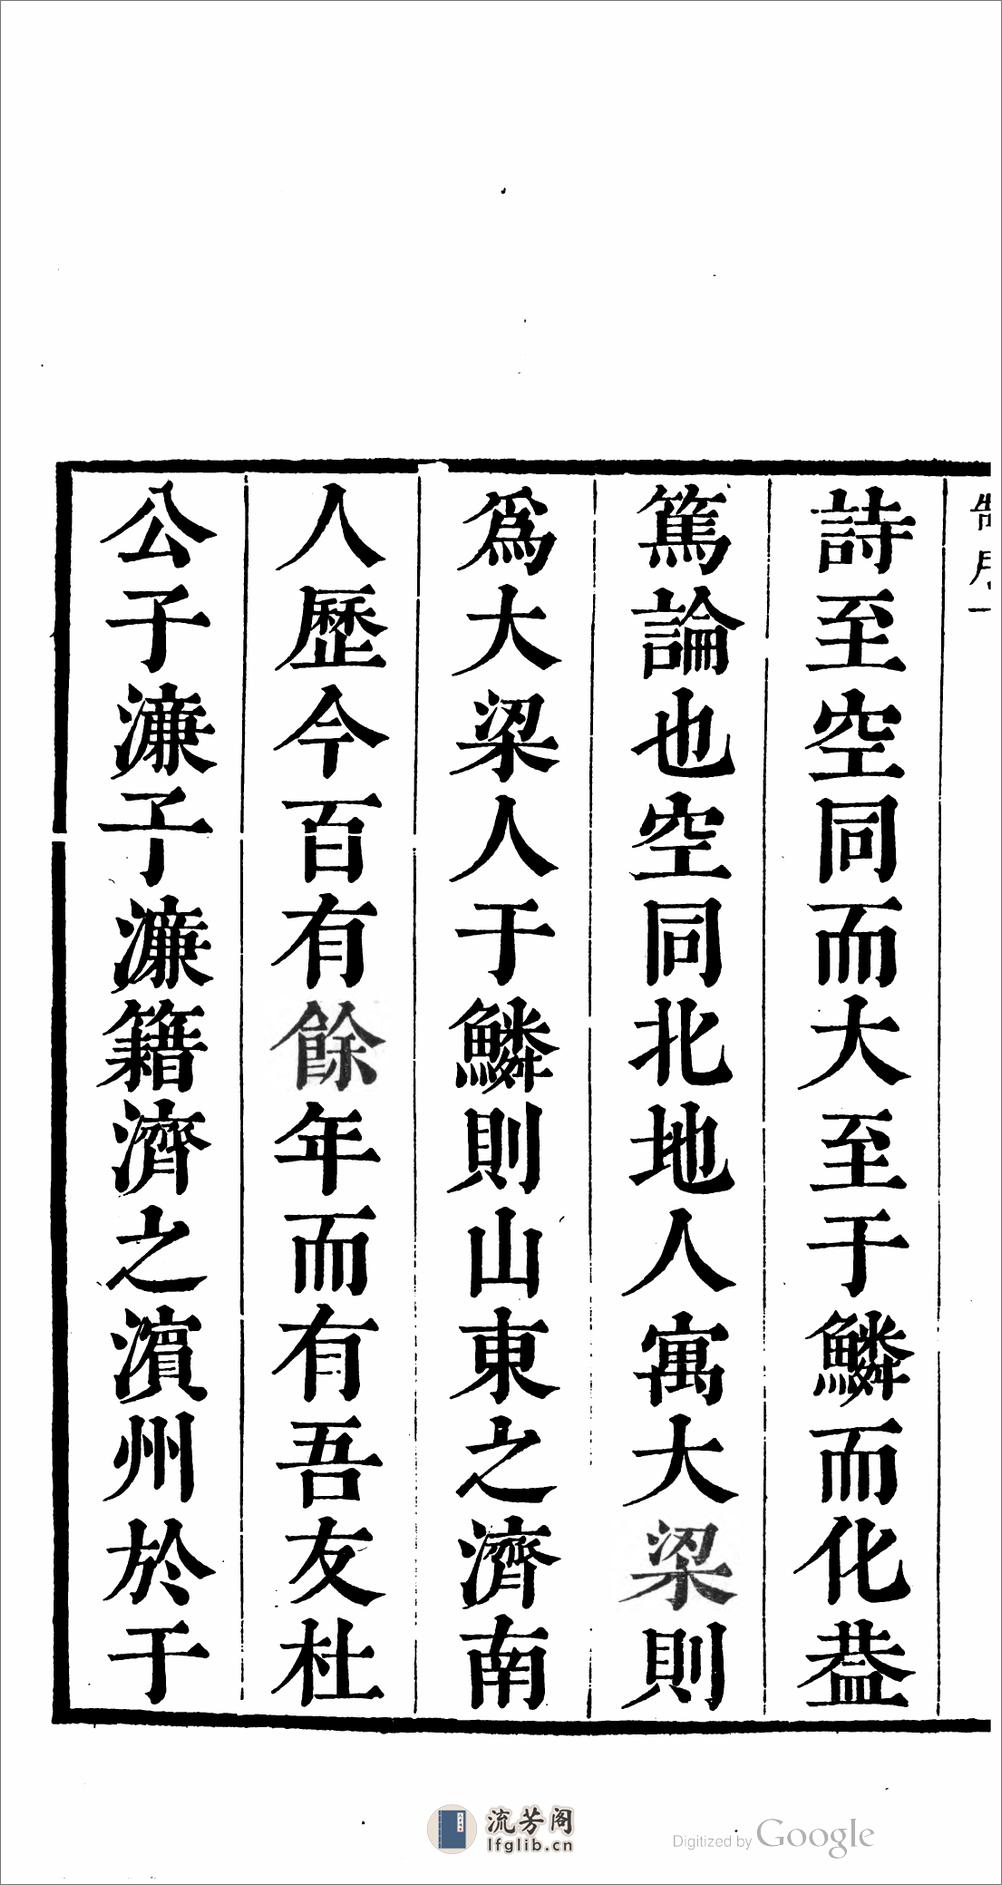 詩至空同而大至于鱗而化葢
篤論也空同北地人寓大梁則
爲大梁人于鱗則山東之濟南
人歷今百有餘年而有吾友杜
公子濂子濂籍濟之濵州於于
流芳阁
lfglib.cn
Digitized by Google